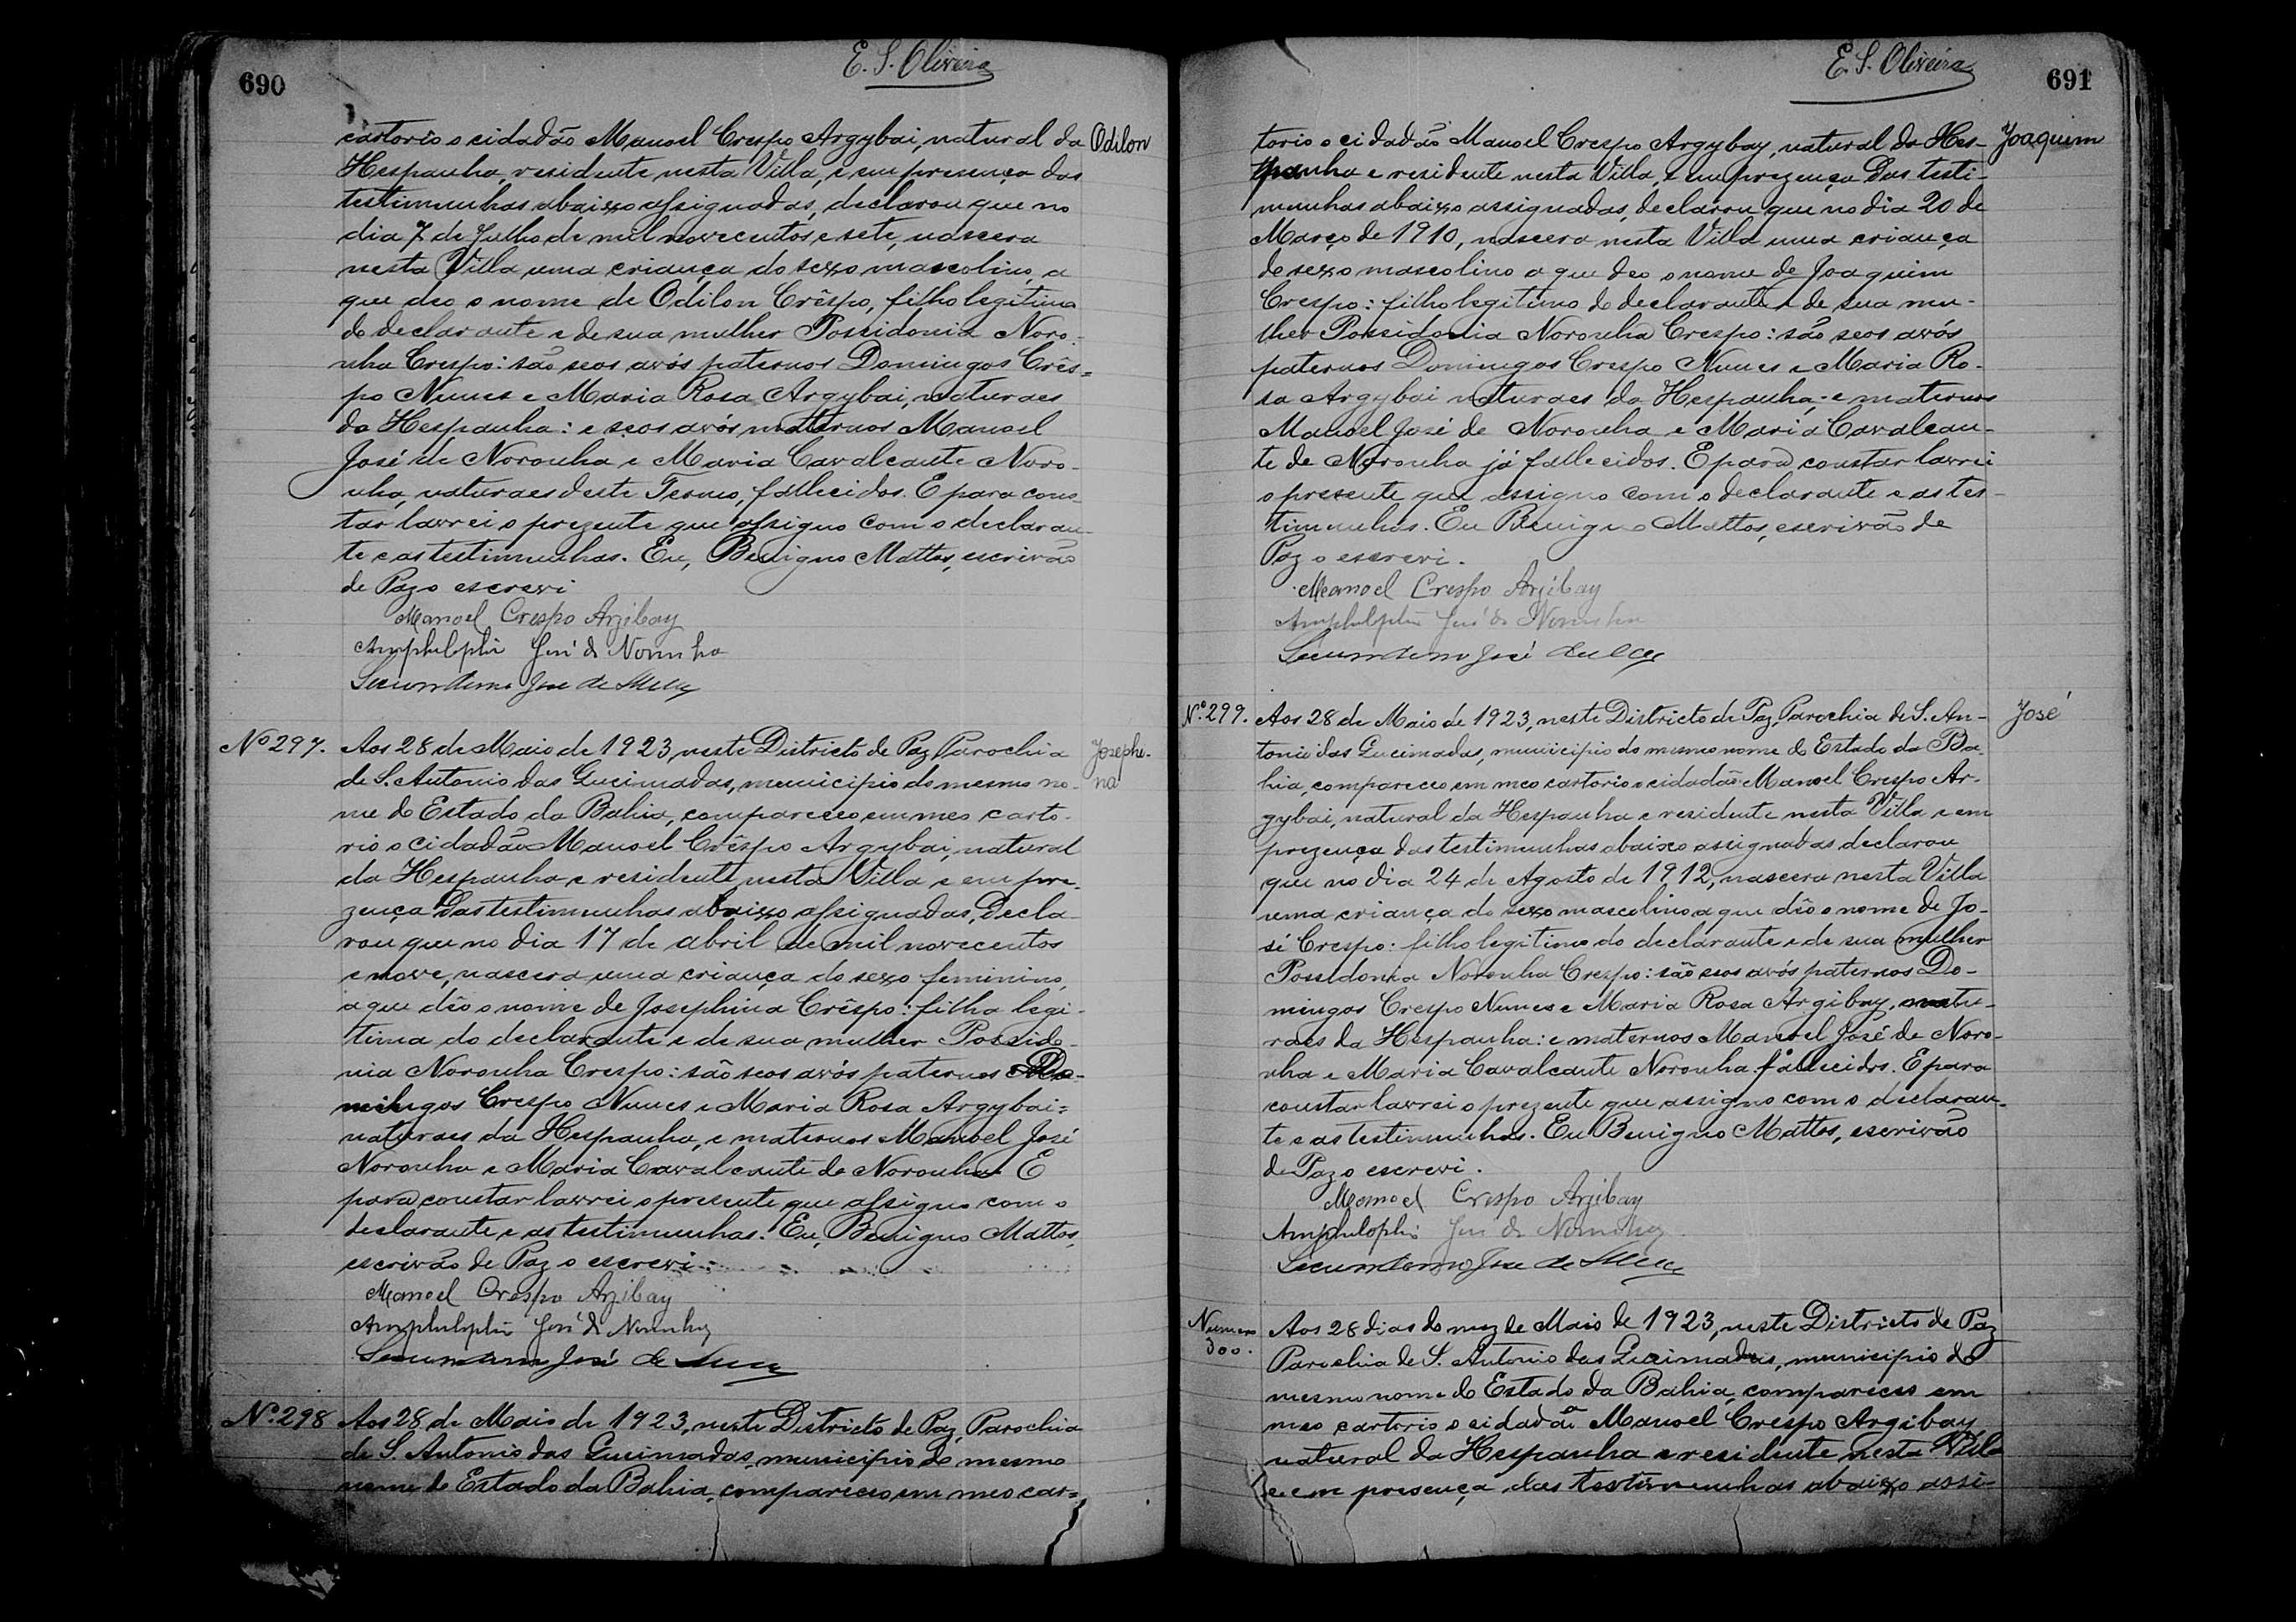 690
E. S. Oliveira
cartorio o cidadão Manoel Crespo Argybai, natural da
Odilon
Hespanha, residente nesta Villa, e em presença das
testimunhas abaixo assignadas, declarou que no
dia 7 de Julho de mil novecentos e sete, nascera
nesta Villa uma criança do sexo mascolino, a
que deo o nome de Odilon Crêspo, filho legitimo
do declarante e de sua mulher Possidonia Noro-
nha Crespo: são seos avós paternos Domingos Crês=
po Nunes e Maria Rosa Argybai, naturaes
da Hespanha: e seos avós maternos Manoel
José de Noronha e Maria Cavalcante Noro-
nha, naturaes deste Termo, fallecidos. E para cons-
tar lavrei o prezente que assigno com o declaran-
te e as testimunhas. Eu, Benigno Mattos, escrivão
de Paz o escrevi
Manoel Crespo Arjibay
Amphilophio José de Noronha
Secundino José de
Nº 297.
Aos 28 de Maio de 1923, neste Districto de Paz Parochia
Josephi-
na
de S. Antonio das Queimadas, municipio do mesmo no-
me do Estado da Bahia, compareceo em meo carto-
rio o cidadão Manoel Crêspo Argybai, natural
da Hespanha e residente nesta Villa e em pre-
zença das testimunhas abaixo assignadas, decla-
rou que no dia 17 de abril de mil novecentos
e nove, nascera uma criança do sexo feminino,
a que dêo o nome de Josephina Crêspo: filha legi-
tima do declarante e de sua mulher Possido-
nia Noronha Crespo: são seos avós paternos Do-
mingos Crespo Nunes e Maria Rosa Argybai=
naturaes da Hespanha, e maternos Manoel José
Noronha e Maria Cavalcante de Noronha E
para constar lavrei o presente que assigno com o
declarante e as testimunhas. Eu, Benigno Mattos,
escrivão de Paz o escrevi
Manoel Crespo Arjibay
Amphilophio José de Noronha
Secundino José de
Nº. 298
Aos 28 de Maio de 1923, neste Districto de Paz, Parochia
de S. Antonio das Queimadas, municipio do mesmo
nome do Estado da Bahia, compareceo em meo car=
E. S. Oliveira
691
torio o cidadão Manoel Crespo Argybay, natural da Hes-
Joaquim
panha e residente nesta Villa, e em prezença das testi-
munhas abaixo assignadas, declarou que no dia 20 de
Março de 1910, nascera nesta Villa uma criança
de sexo mascolino a que deo o nome de Joaquim
Crespo: filho legitimo do declarante e de sua mu-
lher Possidonia Noronha Crespo: são seos avós
paternos Domingos Crespo Nunes e Maria Ro-
sa Argybai naturaes da Hespanha; e maternos
Manoel José de Noronha e Maria Cavalcan-
te de Noronha já fallecidos. E para constar lavrei
o presente que assigno com o declarante e as tes-
timunhas. Eu Benigno Mattos, escrivão de
Paz o escrevi.
Manoel Crespo Arjibay
Amphilophio José de Noronha
Secundino José de
Nº. 299.
Aos 28 de Maio de 1923, neste Districto de Paz, Parochia de S. An-
José
tonio das Queimadas, municipio do mesmo nome do Estado da Ba-
hia, compareceo em meo cartorio o cidadão Manoel Crespo Ar-
gybai, natural da Hespanha e residente nesta Villa e em
prezença das testimunhas abaixo assignadas declarou
que no dia 24 de Agosto de 1912, nascera nesta Villa
uma criança do sexo mascolino a que dêo o nome de Jo-
sé Crespo: filho legitimo do declarante e de sua mulher
Possidonia Noronha Crespo: são seos avós paternos Do-
mingos Crespo Nunes e Maria Rosa Argibay, natu-
raes da Hespanha: e maternos Manoel José de Noro-
nha e Maria Cavalcante Noronha fallecidos. E para
constar lavrei o prezente que assigno com o declaran-
te e as testimunhas. Eu Benigno Mattos, escrivão
de Paz o escrevi.
Manoel Crespo Arjibay
Amphilophio José de Noronha
Secundino José de
Numero
300.
Aos 28 dias do mez de Maio de 1923, neste Districto de Paz
Parochia de S. Antonio das Queimadas, municipio do
mesmo nome do Estado da Bahia, compareceo em
meo cartorio o cidadão Manoel Crespo Argibay
natural da Hespanha e residente nesta Villa
e em presença das testimunhas abaixo assi-